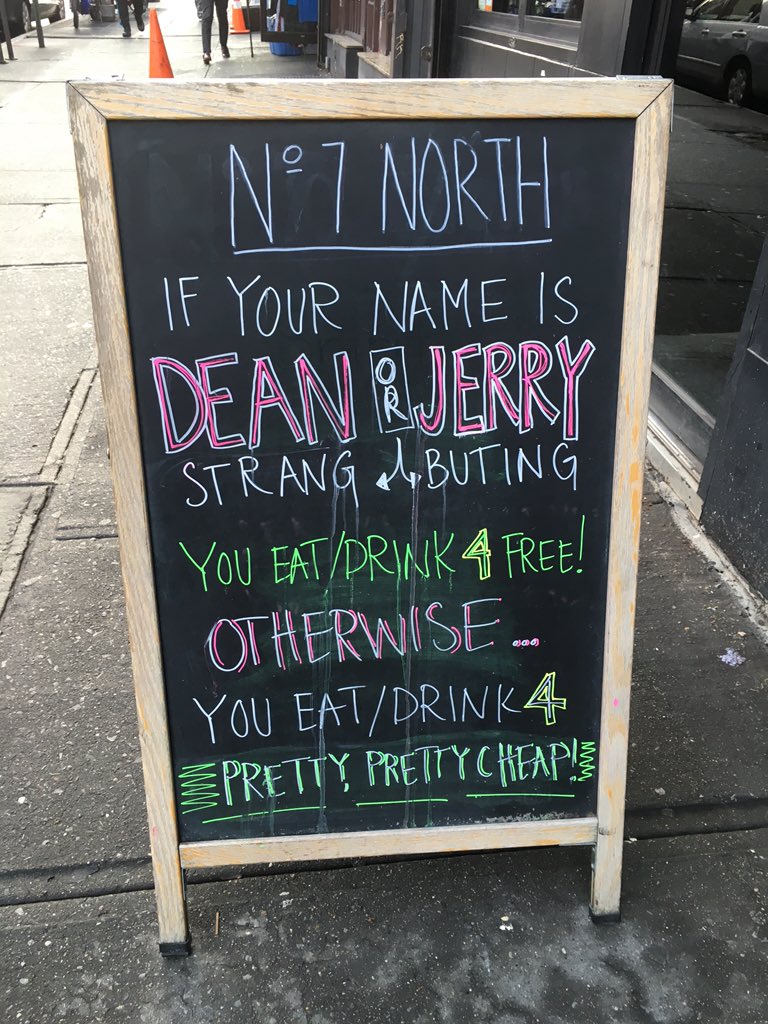 Nº 7 NORTH
IF YOUR NAME IS
DEAN OR JERRY
STRANG BUTING
YOU EAT/DRINK 4 FREE!
OTHERWISE...
YOU EAT/DRINK 4
PRETTY, PRETTY CHEAP!